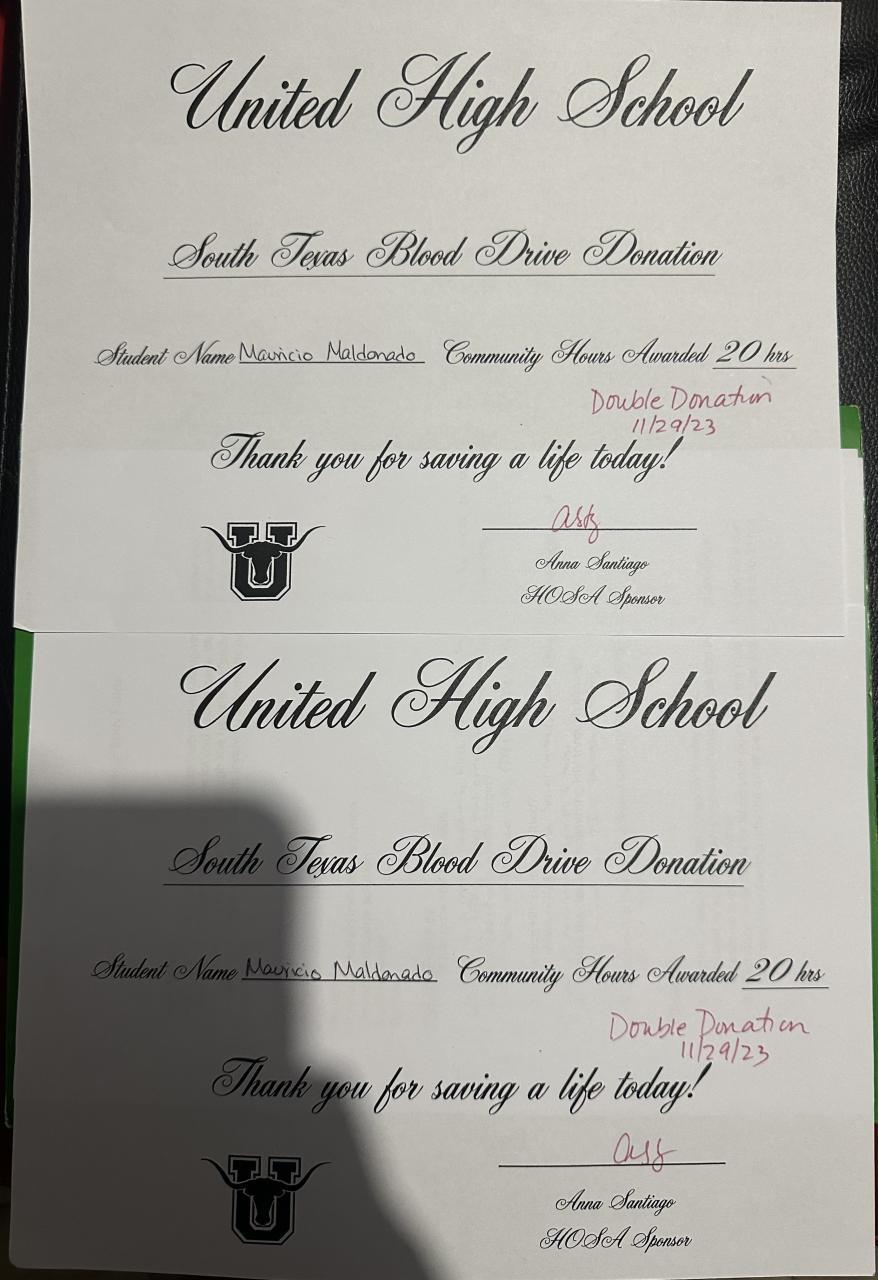 United High School
South Texas Blood Drive Donation
Student Name Mauricio Maldonado Community Hours Awarded 20 hrs
Double Donation
11/29/23
Thank you for saving a life today!
U
Anna Santiago
HOSA Sponsor
United High School
South Texas Blood Drive Donation
Student Name Mauricio Maldonado Community Hours Awarded 20 hrs
Double Donation
11/29/23
Thank you for saving a life today!
U
Anna Santiago
HOSA Sponsor